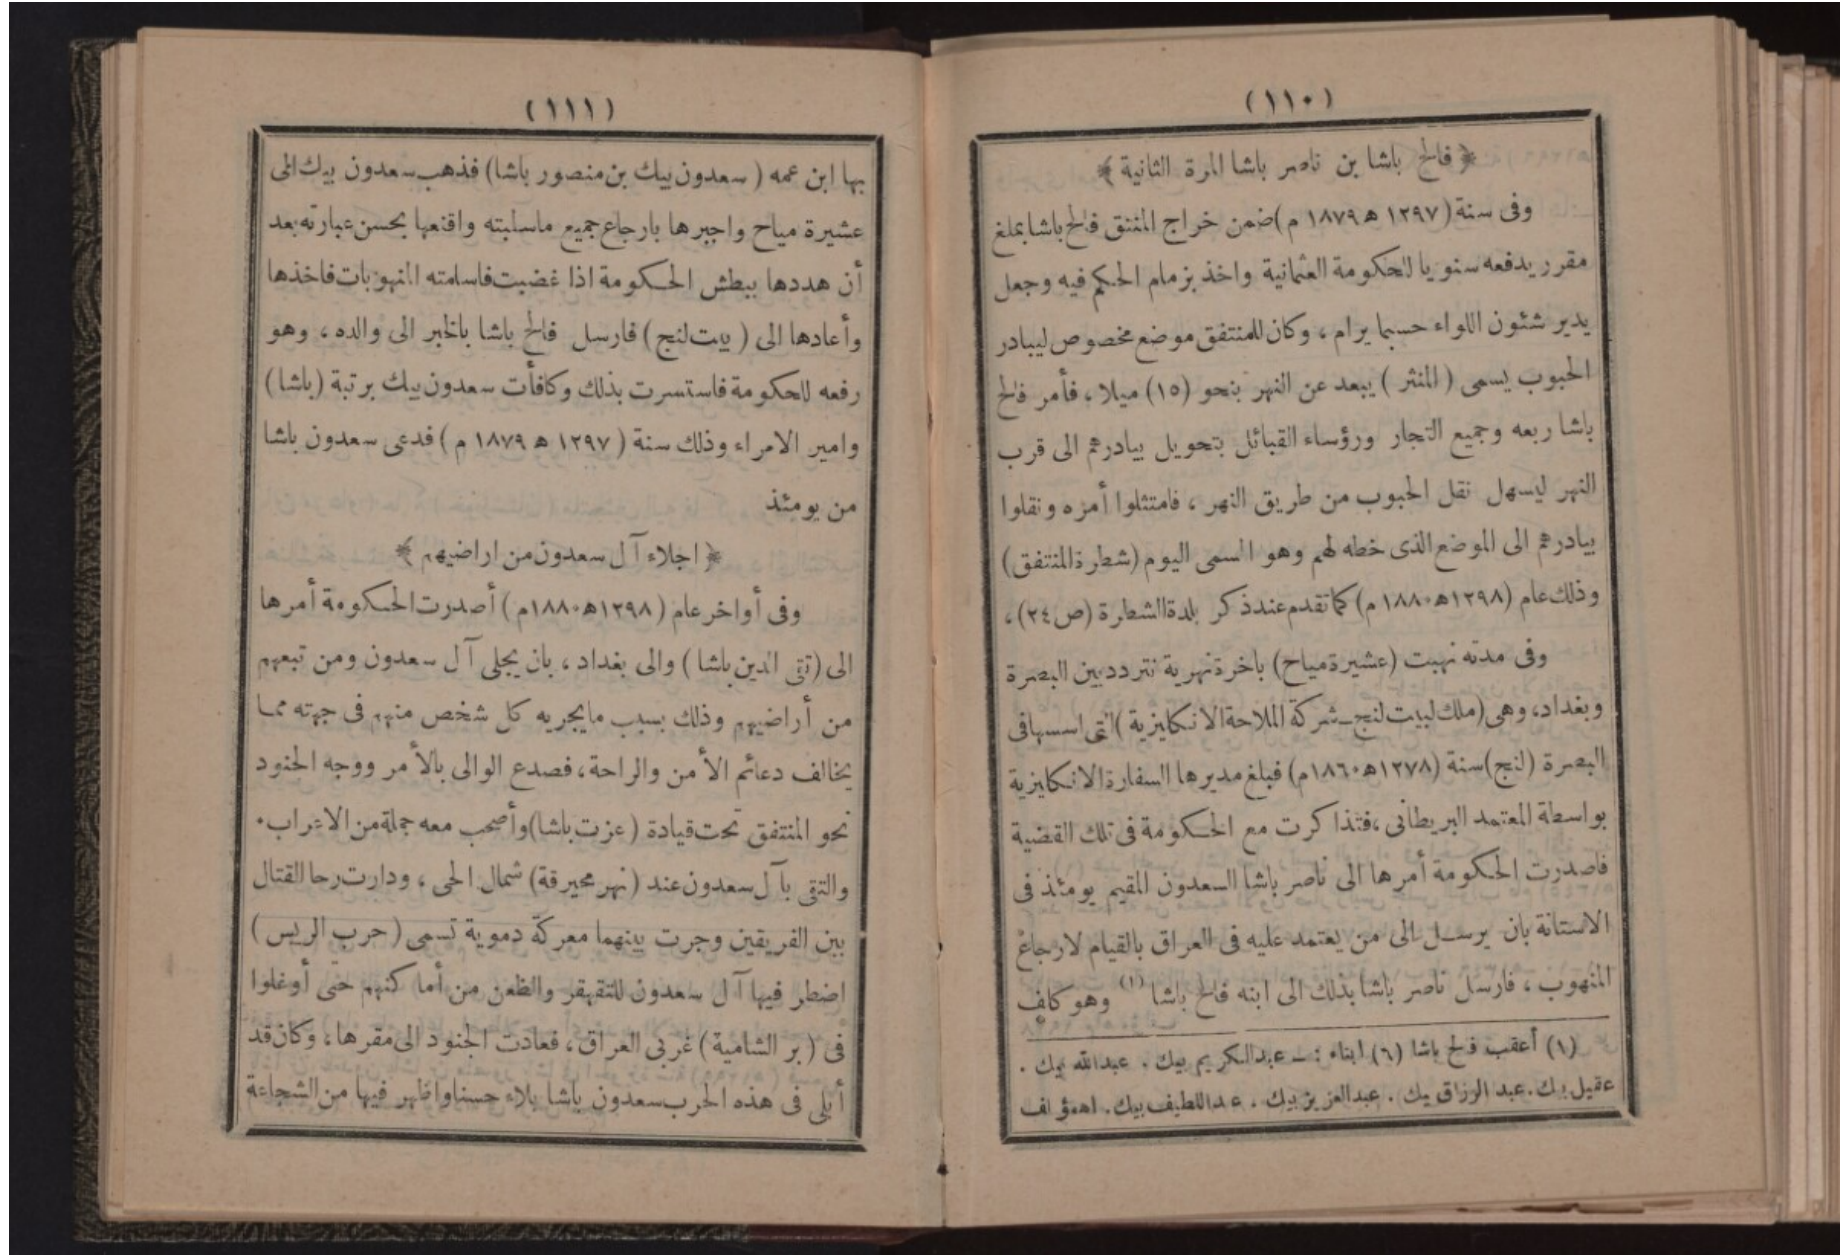 (١١٠)
﴿ فالح باشا بن ناصر باشا المرة الثانية ﴾
وفى سنة (١٢٩٧ ه ١٨٧٩ م) ضمن خراج المنتفق فالح باشا بمبلغ
مقرر يدفعه سنويا للحكومة العثمانية واخذ بزمام الحكم فيه وجعل
يدير شئون اللواء حسبما يرام ، وكان للمنتفق موضع مخصوص لبيادر
الحبوب يسمى (المنثر) يبعد عن النهر بنحو (١٥) ميلا ، فأمر فالح
باشا ربعه وجميع التجار ورؤساء القبائل بتحويل بيادرهم الى قرب
النهر ليسهل نقل الحبوب من طريق النهر ، فامتثلوا أمره ونقلوا
بيادرهم الى الموضع الذى خطه لهم وهو المسمى اليوم (شطرة المنتفق)
وذلك عام (١٢٩٨ه ١٨٨٠ م) كما تقدم عند ذكر بلدة الشطرة (ص ٢٤) ،
وفى مدته نهبت (عشيرة مياح) باخرة نهرية تتردد بين البصرة
وبغداد، وهى (ملك لبيت لنج ـ شركة الملاحة الانكليزية) التى اسسها فى
البصرة (لنج) سنة (١٢٧٨ه ١٨٦٠م) فبلغ مديرها السفارة الانكليزية
بواسطة المعتمد البريطانى ، فتذاكرت مع الحكومة فى تلك القضية
فاصدرت الحكومة أمرها الى ناصر باشا السعدون المقيم يومئذ فى
الاستانة بان يرسل الى من يعتمد عليه فى العراق بالقيام لارجاع
المنهوب ، فارسل ناصر باشا بذلك الى ابنه فالح باشا (١) وهو كلف
(١) أعقب فالح باشا (٦) ابناء : ـ عبدالكريم بيك . عبدالله بيك .
عقيل بيك . عبد الرزاق بيك . عبدالعزيز بيك . عبداللطيف بيك . اهمؤلف
(١١١)
بها ابن عمه ( سعدون بيك بن منصور باشا) فذهب سعدون بيك الى
عشيرة مياح واجبرها بارجاع جميع ماسلبته واقنعها بحسن عبارته بعد
أن هددها ببطش الحكومة اذا غضبت فاسلمته المنهوبات فاخذها
وأعادها الى ( بيت لنج ) فارسل فالح باشا بالخبر الى والده ، وهو
رفعه للحكومة فاستسرت بذلك وكافأت سعدون بيك برتبة (باشا)
وامير الامراء وذلك سنة ( ١٢٩٧ ه ١٨٧٩ م ) فدعى سعدون باشا
من يومئذ
﴿ اجلاء آل سعدون من اراضيهم ﴾
وفى أواخر عام ( ١٢٩٨ه ١٨٨٠م ) أصدرت الحكومة أمرها
الى (تقى الدين باشا ) والى بغداد ، بان يجلى آل سعدون ومن تبعهم
من أراضيهم وذلك بسبب مايجريه كل شخص منهم فى جهته مما
يخالف دعائم الأمن والراحة، فصدع الوالى بالأمر ووجه الجنود
نحو المنتفق تحت قيادة ( عزت باشا) وأصحب معه جملة من الاعراب .
والتقى بآل سعدون عند ( نهر محيرقة) شمال الحى ، ودارت رحا القتال
بين الفريقين وجرت بينهما معركة دموية تسمى ( حرب الريس )
اضطر فيها آل سعدون للتقهقر والظعن من أماكنهم حتى أوغلوا
فى ( بر الشامية ) غربى العراق ، فعادت الجنود الى مقرها ، وكان قد
أبلى فى هذه الحرب سعدون باشا بلاء حسنا واظهر فيها من الشجاعة